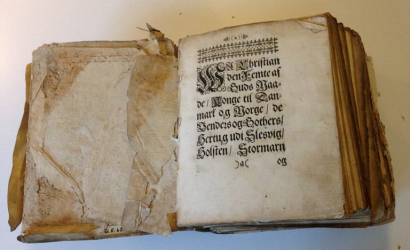 (o)
WJ Christian
den Femte af
Guds Naa-
de/ Konge til Dan-
marck og Norge/ de
Venders og Gothers/
Hertug udi Slesvig/
Holsten/ Stormarn
)a( og